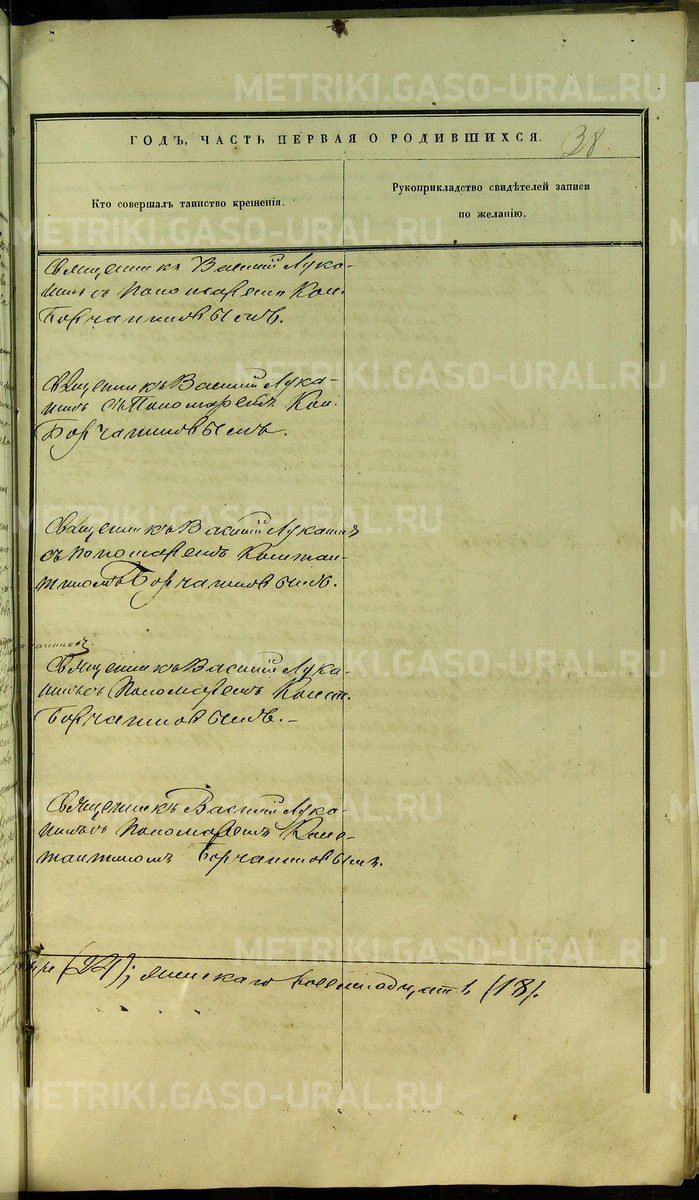 METRIKI.GASO-URAL.RU
ГОДЪ, ЧАСТЬ ПЕРВАЯ О РОДИВШИХСЯ.
38
Кто совершалъ таинство крещенія.
Рукоприкладство свидѣтелей записи
по желанію.
Священникъ Василій Лука-
нинъ съ Пономаремъ Кон.
Борчаниновымъ.
Священникъ Василій Лука-
нинъ съ Пономаремъ Кон.
Борчаниновымъ.
Священникъ Василій Луканинъ
съ пономаремъ Констан-
тиномъ Борчаниновымъ.
Священникъ Василій Лука-
нинъ съ Пономаремъ Конст.
Борчаниновымъ.-
Священникъ Василій Лука-
нинъ съ Пономаремъ Конс-
тантиномъ Борчаниновымъ.
(24); женскаго восемнадцать (18).